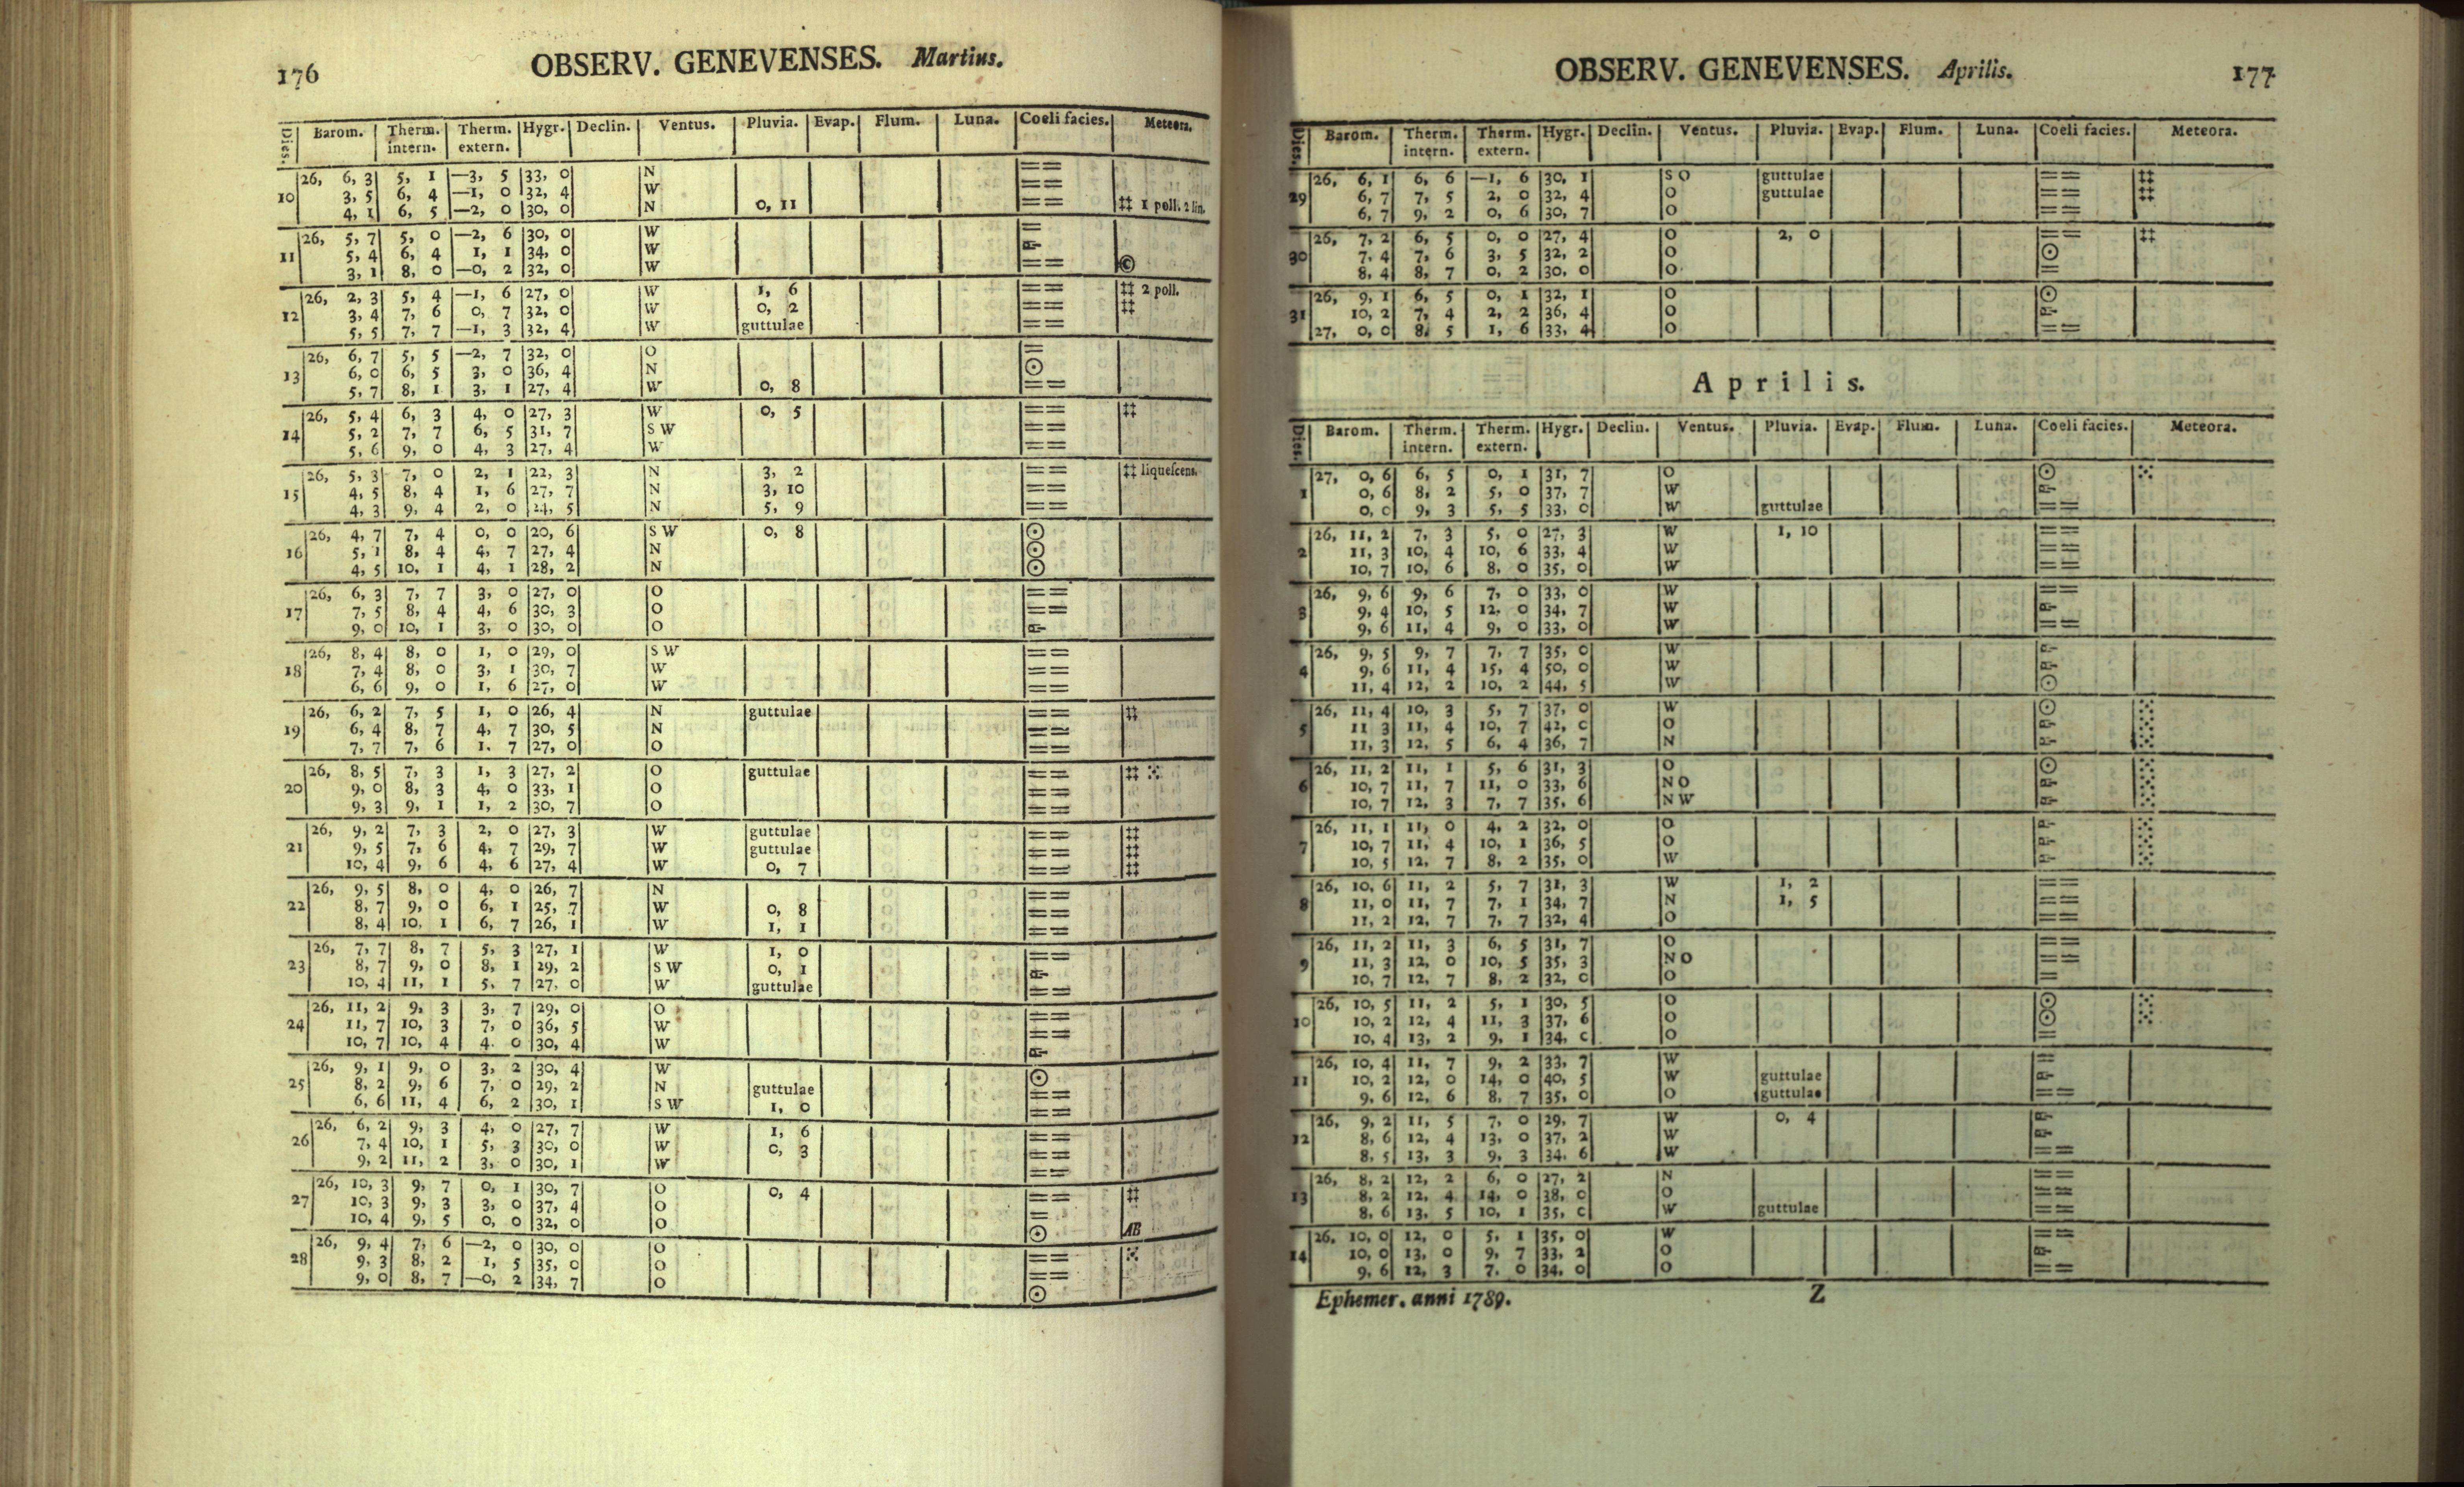 176
OBSERV. GENEVENSES. Martius.
Dies. Barom. Therm. intern. Therm. extern. Hygr. Declin. Ventus. Pluvia. Evap. Flum. Luna. Coeli facies. Meteora.
10 26, 6, 3 5, 1 —3, 5 33, 0 N ==
3, 5 6, 4 —1, 0 32, 4 W ==
4, 1 6, 5 —2, 0 30, 0 N 0, 11 == ‡‡ 1 poll. 2 lin.
11 26, 5, 7 5, 0 —2, 6 30, 0 W =
5, 4 6, 4 1, 1 34, 0 W
3, 1 8, 0 —0, 2 32, 0 W == ©
12 26, 2, 3 5, 4 —1, 6 27, 0 W 1, 6 == ‡‡ 2 poll.
3, 4 7, 6 0, 7 32, 0 W 0, 2 == ‡‡
5, 5 7, 7 —1, 3 32, 4 W guttulae ==
13 26, 6, 7 5, 5 —2, 7 32, 0 O =
6, 0 6, 5 3, 0 36, 4 N ☉
5, 7 8, 1 3, 1 27, 4 W 0, 8 ==
14 26, 5, 4 6, 3 4, 0 27, 3 W 0, 5 == ‡‡
5, 2 7, 7 6, 5 31, 7 S W ==
5, 6 9, 0 4, 3 27, 4 W ==
15 26, 5, 3 7, 0 2, 1 22, 3 N 3, 2 == ‡‡ liquescens.
4, 5 8, 4 1, 6 27, 7 N 3, 10 ==
4, 3 9, 4 2, 0 24, 5 N 5, 9 ==
16 26, 4, 7 7, 4 0, 0 20, 6 S W 0, 8 ☉
5, 1 8, 4 4, 7 27, 4 N ☉
4, 5 10, 1 4, 1 28, 2 N ☉
17 26, 6, 3 7, 7 3, 0 27, 0 O ==
7, 5 8, 4 4, 6 30, 3 O ==
9, 0 10, 1 3, 0 30, 0 O
18 26, 8, 4 8, 0 1, 0 29, 0 S W ==
7, 4 8, 0 3, 1 30, 7 W ==
6, 6 9, 0 1, 6 27, 0 W ==
19 26, 6, 2 7, 5 1, 0 26, 4 N guttulae == ‡‡
6, 4 8, 7 4, 7 30, 5 N ==
7, 7 7, 6 1. 7 27, 0 O ==
20 26, 8, 5 7, 3 1, 3 27, 2 O guttulae == ‡‡ ⁙
9, 0 8, 3 4, 0 33, 1 O ==
9, 3 9, 1 1, 2 30, 7 O ==
21 26, 9, 2 7, 3 2, 0 27, 3 W guttulae == ‡‡
9, 5 7, 6 4, 7 29, 7 W guttulae == ‡‡
10, 4 9, 6 4, 6 27, 4 W 0, 7 == ‡‡
22 26, 9, 5 8, 0 4, 0 26, 7 N ==
8, 7 9, 0 6, 1 25, 7 W 0, 8 ==
8, 4 10, 1 6, 7 26, 1 W 1, 1 ==
23 26, 7, 7 8, 7 5, 3 27, 1 W 1, 0 ==
8, 7 9, 0 8, 1 29, 2 S W 0, 1
10, 4 11, 1 5, 7 27, 0 W guttulae ==
24 26, 11, 2 9, 3 3, 7 29, 0 O ==
11, 7 10, 3 7, 0 36, 5 W ==
10, 7 10, 4 4. 0 30, 4 W
25 26, 9, 1 9, 0 3, 2 30, 4 W ☉
8, 2 9, 6 7, 0 29, 2 N guttulae ==
6, 6 11, 4 6, 2 30, 1 S W 1, 0 ==
26 26, 6, 2 9, 3 4, 0 27, 7 W 1, 6 ==
7, 4 10, 1 5, 3 30, 0 W 0, 3 ==
9, 2 11, 2 3, 0 30, 1 W ==
27 26, 10, 3 9, 7 0, 1 30, 7 O 0, 4 == ‡‡
10, 3 9, 3 3, 0 37, 4 O =
10, 4 9, 5 0, 0 32, 0 O ☉ AB
28 26, 9, 4 7, 6 —2, 0 30, 0 O == ⁙
9, 3 8, 2 1, 5 35, 0 O ==
9, 0 8, 7 —0, 2 34, 7 O ☉
OBSERV. GENEVENSES. Aprilis.
177
Dies. Barom. Therm. intern. Therm. extern. Hygr. Declin. Ventus. Pluvia. Evap. Flum. Luna. Coeli facies. Meteora.
29 26, 6, 1 6, 6 —1, 6 30, 1 S O guttulae == ‡‡
6, 7 7, 5 2, 0 32, 4 O guttulae == ‡‡
6, 7 9, 2 0, 6 30, 7 O ==
30 26, 7, 2 6, 5 0, 0 27, 4 O 2, 0 == ‡‡
7, 4 7, 6 3, 5 32, 2 O ☉
8, 4 8, 7 0, 2 30, 0 O =
31 26, 9, 1 6, 5 0, 1 32, 1 O ☉
10, 2 7, 4 2, 2 36, 4 O
27, 0, 0 8, 5 1, 6 33, 4 O ==
Aprilis.
Dies. Barom. Therm. intern. Therm. extern. Hygr. Declin. Ventus. Pluvia. Evap. Flum. Luna. Coeli facies. Meteora.
1 27, 0, 6 6, 5 0, 1 31, 7 O ☉ ⁙
0, 6 8, 2 5, 0 37, 7 W
0, 0 9, 3 5, 5 33, 0 W guttulae ==
2 26, 11, 2 7, 3 5, 0 27, 3 W 1, 10 ==
11, 3 10, 4 10, 6 33, 4 W ==
10, 7 10, 6 8, 0 35, 0 W ==
3 26, 9, 6 9, 6 7, 0 33, 0 W ==
9, 4 10, 5 12. 0 34, 7 W
9, 6 11, 4 9, 0 33, 0 W ==
4 26, 9, 5 9, 7 7, 7 35, 0 W
9, 6 11, 4 15, 4 50, 0 W
11, 4 12, 2 10, 2 44, 5 W ☉
5 26, 11, 4 10, 3 5, 7 37, 0 W ☉ ⁙
11 3 11, 4 10, 7 42, 0 O ⁙
11, 3 12, 5 6, 4 36, 7 N ⁙
6 26, 11, 2 11, 1 5, 6 31, 3 O ☉ ⁙
10, 7 11, 7 11, 0 33, 6 N O ⁙
10, 7 12, 3 7, 7 35, 6 N W ⁙
7 26, 11, 1 11, 0 4, 2 32, 0 O ⁙
10, 7 11, 4 10, 1 36, 5 O ⁙
10, 5 12, 7 8, 2 35, 0 W ⁙
8 26, 10, 6 11, 2 5, 7 31, 3 W 1, 2 ==
11, 0 11, 7 7, 1 34, 7 N 1, 5 ==
11, 2 12, 7 7, 7 32, 4 O ==
9 26, 11, 2 11, 3 6, 5 31, 7 O ==
11, 3 12, 0 10, 5 35, 3 N O ==
10, 7 12, 7 8, 2 32, 0 O =
10 26, 10, 5 11, 2 5, 1 30, 5 O ☉ ⁙
10, 2 12, 4 11, 3 37, 6 O ☉ ⁙
10, 4 13, 2 9, 1 34, 0 O =
11 26, 10, 4 11, 7 9, 2 33, 7 W =
10, 2 12, 0 14, 0 40, 5 W guttulae
9, 6 12, 6 8, 7 35, 0 O guttulae ==
12 26, 9, 2 11, 5 7, 0 29, 7 W 0, 4
8, 6 12, 4 13, 0 37, 2 W
8, 5 13, 3 9, 3 34. 6 W ==
13 26, 8, 2 12, 2 6, 0 27, 2 N ==
8, 2 12, 4 14, 0 38, 0 O ==
8, 6 13, 5 10, 1 35, 0 W guttulae ==
14 26, 10, 0 12, 0 5, 1 35, 0 W ==
10, 0 13, 0 9, 7 33, 2 O
9, 6 12, 3 7. 0 34. 0 O ==
Ephemer. anni 1789.
Z